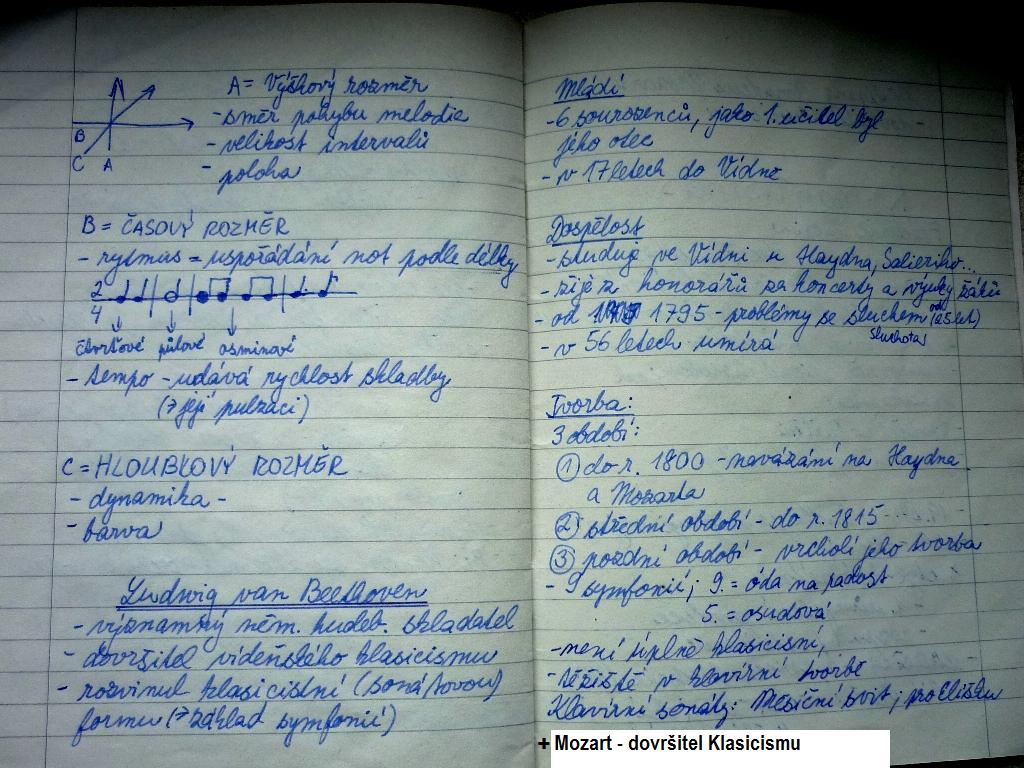 B
C A
A = Výškový rozměr
- směr pohybu melodie
- velikost intervalů
- poloha
B = ČASOVÝ ROZMĚR
- rytmus = uspořádání not podle délky
2
4
čtvrťové půlové osminové
- tempo - udává rychlost skladby
(→ její pulzaci)
C = HLOUBKOVÝ ROZMĚR
- dynamika -
- barva
Ludwig van Beethoven
- významný něm. hudeb. skladatel
- dovršitel vídeňského klasicismu
- rozvinul klasicistní (sonátovou)
formu (→ základ symfonií)
Mládí
- 6 sourozenců, jako 1. učitel byl
jeho otec
- v 17 letech do Vídně
Dospělost
- studuje ve Vídni u Haydna, Salieriho...
- žije z honorářů za koncerty a výuky žáků
- od 1795 - problémy se sluchem (od 25 let)
sluchota
- v 56 letech umírá
Tvorba:
3 období:
① do r. 1800 - navázání na Haydna
a Mozarta
② střední období - do r. 1815
③ pozdní období - vrcholí jeho tvorba
- 9 symfonií; 9. = óda na radost
5. = osudová
- není úplně klasicisní,
- těžiště v klavírní tvorbě
Klavírní sonáty: Měsíční svit; pro Elišku
+ Mozart - dovršitel Klasicismu